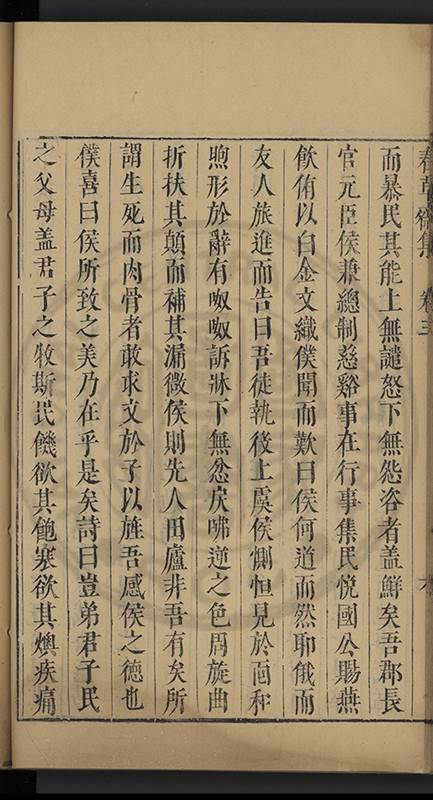 春草齋集 卷三
而暴民其能上無譴怒下無怨咨者蓋鮮矣吾郡長
官元臣侯兼總制慈谿事在行事集民悅國公賜燕
飲侑以白金文織僕聞而歎曰侯何道而然耶俄而
友人旅進而告曰吾徒執役上虞侯惻怛見於面和
煦形於辭有呶呶訴牀下無忿戾咈逆之色周旋曲
折扶其顛而補其漏微侯則先人田廬非吾有矣所
謂生死而肉骨者敢求文於子以旌吾感侯之德也
僕喜曰侯所致之美乃在乎是矣詩曰豈弟君子民
之父母蓋君子之牧斯民饑欲其飽寒欲其燠疾痛